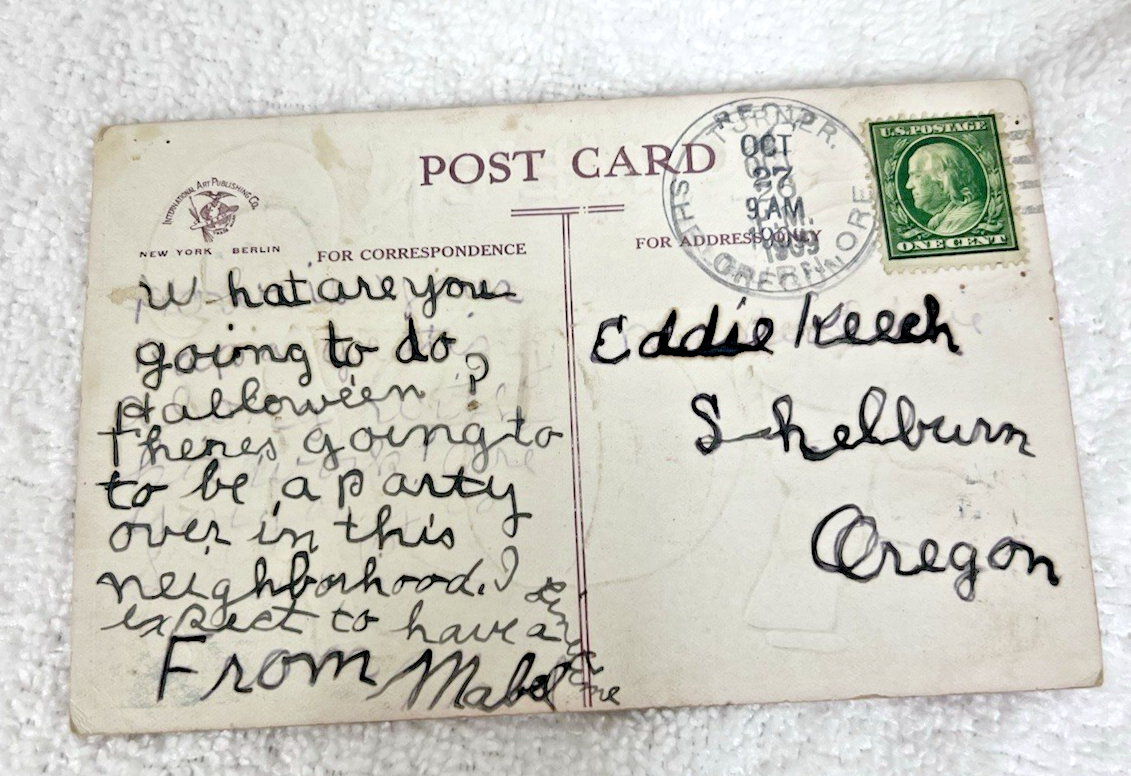 POST CARD
INTERNATIONAL ART PUBLISHING CO.
NEW YORK BERLIN
FOR CORRESPONDENCE
FOR ADDRESS ONLY
TURNER.
REC'D.
OCT
27
9 AM.
1909
OREGON
U.S. POSTAGE
ONE CENT
What are you
going to do
Halloween?
Theres going to
to be a party
over in this
neighborhood. I
expect to have a
From Mabel
Eddie Keech
Shelburn
Oregon